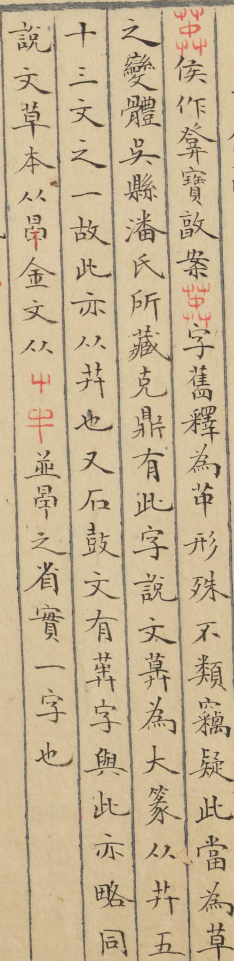 侯作寶敦案字舊釋為形殊不類竊疑此當為草
之變體吳縣潘氏所藏克鼎有此字說文為大篆从茻五
十三文之一故此亦从茻也又石鼓文有字與此亦略同
說文草本从金文从並之省實一字也